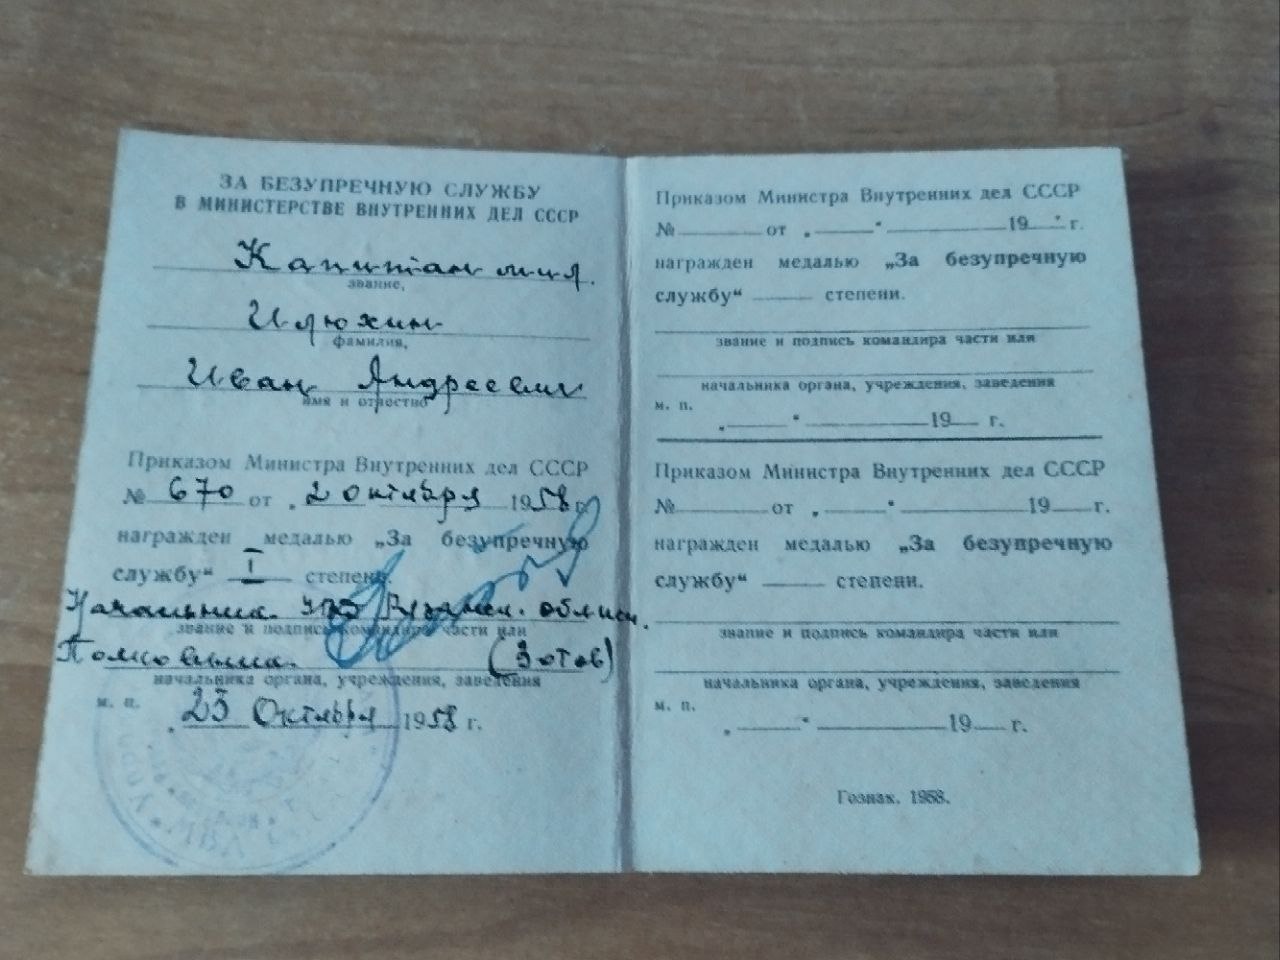 ЗА БЕЗУПРЕЧНУЮ СЛУЖБУ
В МИНИСТЕРСТВЕ ВНУТРЕННИХ ДЕЛ СССР
Капитан мил.
звание,
Илюхин
фамилия,
Иван Андреевич
имя и отчество
Приказом Министра Внутренних дел СССР
№ 670 от „ 2 октября 1958 г.
награжден медалью „За безупречную
службу“ I степени.
Начальник облисп.
звание и подпись командира части или
Полковник (Зотов)
начальника органа, учреждения, заведения
м. п.
„ 23 Октября 1958 г.
Приказом Министра Внутренних дел СССР
№ от „ “ 19 г.
награжден медалью „За безупречную
службу“ степени.
звание и подпись командира части или
начальника органа, учреждения, заведения
м. п.
„ “ 19 г.
Приказом Министра Внутренних дел СССР
№ от „ “ 19 г.
награжден медалью „За безупречную
службу“ степени.
звание и подпись командира части или
начальника органа, учреждения, заведения
м. п.
„ “ 19 г.
Гознак. 1958.